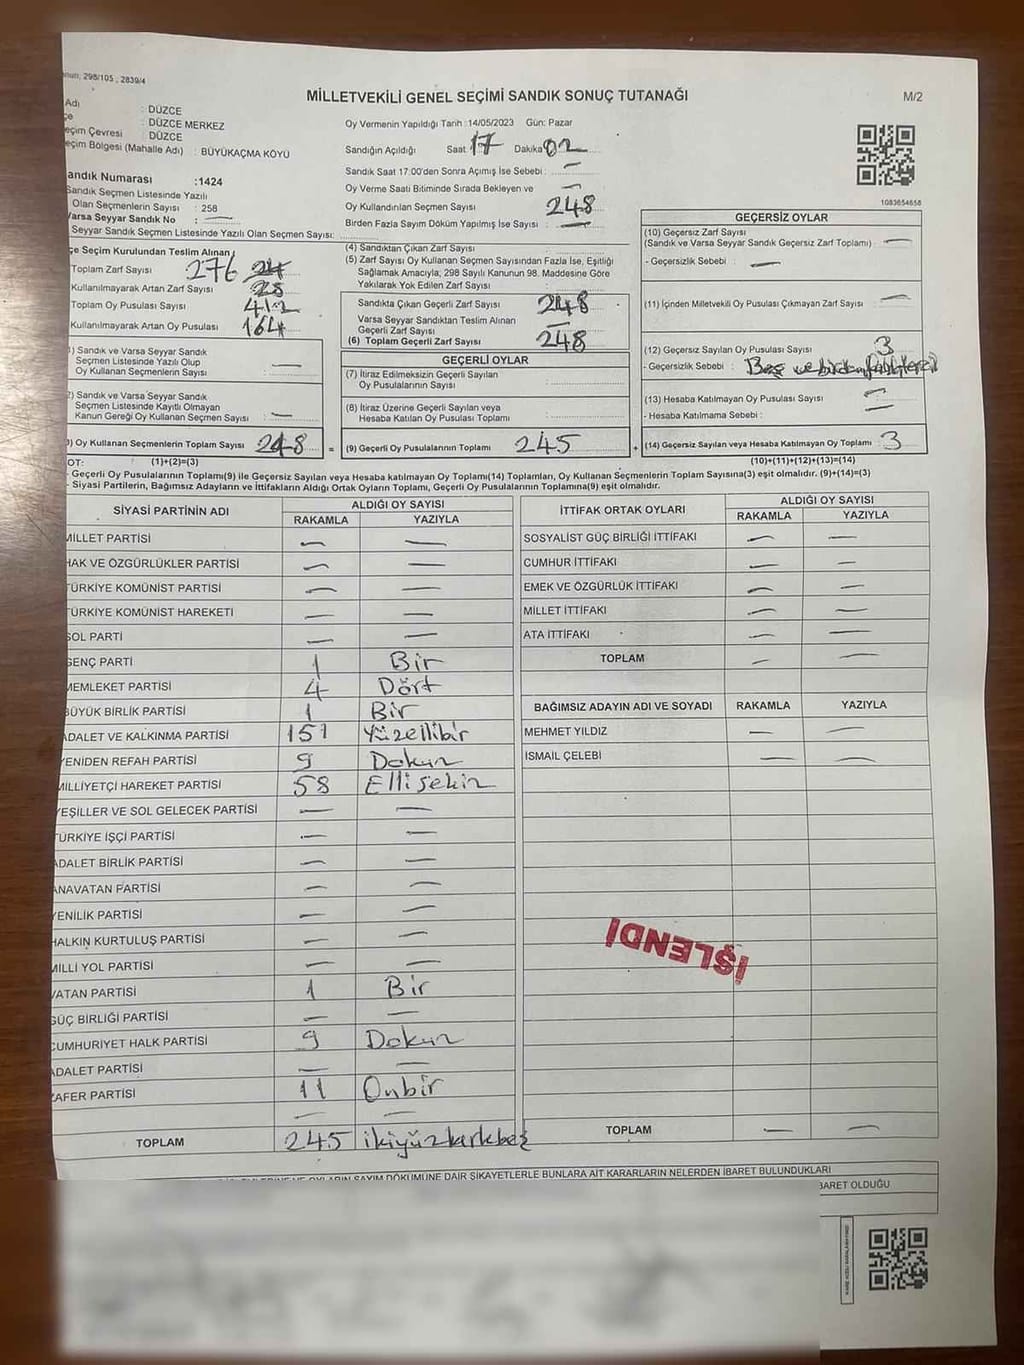 298/105 , 2839/4
MİLLETVEKİLİ GENEL SEÇİMİ SANDIK SONUÇ TUTANAĞI
M/2
Adı : DÜZCE
çe : DÜZCE MERKEZ
eçim Çevresi : DÜZCE
eçim Bölgesi (Mahalle Adı) : BÜYÜKAÇMA KÖYÜ
andık Numarası : 1424
Sandık Seçmen Listesinde Yazılı
Olan Seçmenlerin Sayısı : 258
Varsa Seyyar Sandık No : —
Seyyar Sandık Seçmen Listesinde Yazılı Olan Seçmen Sayısı:
Oy Vermenin Yapıldığı Tarih :14/05/2023 Gün: Pazar
Sandığın Açıldığı Saat 17 Dakika 02
Sandık Saat 17:00'den Sonra Açımış İse Sebebi : —
Oy Verme Saati Bitiminde Sırada Bekleyen ve —
Oy Kullandırılan Seçmen Sayısı 248
Birden Fazla Sayım Döküm Yapılmış İse Sayısı : —
1083654658
çe Seçim Kurulundan Teslim Alınan
Toplam Zarf Sayısı 276
Kullanılmayarak Artan Zarf Sayısı : 28
Toplam Oy Pusulası Sayısı 412
Kullanılmayarak Artan Oy Pusulası 164
) Sandık ve Varsa Seyyar Sandık
Seçmen Listesinde Yazılı Olup
Oy Kullanan Seçmenlerin Sayısı : —
2) Sandık ve Varsa Seyyar Sandık
Seçmen Listesinde Kayıtlı Olmayan
Kanun Gereği Oy Kullanan Seçmen Sayısı : —
) Oy Kullanan Seçmenlerin Toplam Sayısı 248
(4) Sandıktan Çıkan Zarf Sayısı :
(5) Zarf Sayısı Oy Kullanan Seçmen Sayısından Fazla İse, Eşitliği
Sağlamak Amacıyla; 298 Sayılı Kanunun 98. Maddesine Göre
Yakılarak Yok Edilen Zarf Sayısı :
Sandıkta Çıkan Geçerli Zarf Sayısı 248
Varsa Seyyar Sandıktan Teslim Alınan
Geçerli Zarf Sayısı —
(6) Toplam Geçerli Zarf Sayısı : 248
GEÇERLİ OYLAR
(7) İtiraz Edilmeksizin Geçerli Sayılan
Oy Pusulalarının Sayısı :
(8) İtiraz Üzerine Geçerli Sayılan veya
Hesaba Katılan Oy Pusulası Toplamı :
= (9) Geçerli Oy Pusulalarının Toplamı 245
GEÇERSİZ OYLAR
(10) Geçersiz Zarf Sayısı
(Sandık ve Varsa Seyyar Sandık Geçersiz Zarf Toplamı) —
- Geçersizlik Sebebi : —
(11) İçinden Milletvekili Oy Pusulası Çıkmayan Zarf Sayısı —
(12) Geçersiz Sayılan Oy Pusulası Sayısı 3
- Geçersizlik Sebebi : Boş ve birden
(13) Hesaba Katılmayan Oy Pusulası Sayısı : —
- Hesaba Katılmama Sebebi : —
+ (14) Geçersiz Sayılan veya Hesaba Katılmayan Oy Toplamı : 3
OT: (1)+(2)=(3) (10)+(11)+(12)+(13)=(14)
- Geçerli Oy Pusulalarının Toplamı(9) ile Geçersiz Sayılan veya Hesaba Katılmayan Oy Toplamı(14) Toplamları, Oy Kullanan Seçmenlerin Toplam Sayısına(3) eşit olmalıdır. (9)+(14)=(3)
- Siyasi Partilerin, Bağımsız Adayların ve İttifakların Aldığı Ortak Oyların Toplamı, Geçerli Oy Pusulalarının Toplamına(9) eşit olmalıdır.
SİYASİ PARTİNİN ADI ALDIĞI OY SAYISI
RAKAMLA YAZIYLA
MİLLET PARTİSİ — —
HAK VE ÖZGÜRLÜKLER PARTİSİ — —
TÜRKİYE KOMÜNİST PARTİSİ — —
TÜRKİYE KOMÜNİST HAREKETİ — —
SOL PARTİ — —
GENÇ PARTİ 1 Bir
MEMLEKET PARTİSİ 4 Dört
BÜYÜK BİRLİK PARTİSİ 1 Bir
ADALET VE KALKINMA PARTİSİ 151 Yüzellibir
YENİDEN REFAH PARTİSİ 9 Dokuz
MİLLİYETÇİ HAREKET PARTİSİ 58 Ellisekiz
YEŞİLLER VE SOL GELECEK PARTİSİ — —
TÜRKİYE İŞÇİ PARTİSİ — —
ADALET BİRLİK PARTİSİ — —
ANAVATAN PARTİSİ — —
YENİLİK PARTİSİ — —
HALKIN KURTULUŞ PARTİSİ — —
MİLLİ YOL PARTİSİ — —
VATAN PARTİSİ 1 Bir
GÜÇ BİRLİĞİ PARTİSİ — —
CUMHURİYET HALK PARTİSİ 9 Dokuz
ADALET PARTİSİ — —
ZAFER PARTİSİ 11 Onbir
— —
TOPLAM 245 ikiyüzkırkbeş
İTTİFAK ORTAK OYLARI ALDIĞI OY SAYISI
RAKAMLA YAZIYLA
SOSYALİST GÜÇ BİRLİĞİ İTTİFAKI — —
CUMHUR İTTİFAKI — —
EMEK VE ÖZGÜRLÜK İTTİFAKI — —
MİLLET İTTİFAKI — —
ATA İTTİFAKI — —
TOPLAM — —
BAĞIMSIZ ADAYIN ADI VE SOYADI RAKAMLA YAZIYLA
MEHMET YILDIZ — —
İSMAİL ÇELEBİ — —
İŞLENDİ
TOPLAM — —
OYLARIN SAYIM DÖKÜMÜNE DAİR ŞİKAYETLERLE BUNLARA AİT KARARLARIN NELERDEN İBARET BULUNDUKLARI
BARET OLDUĞU